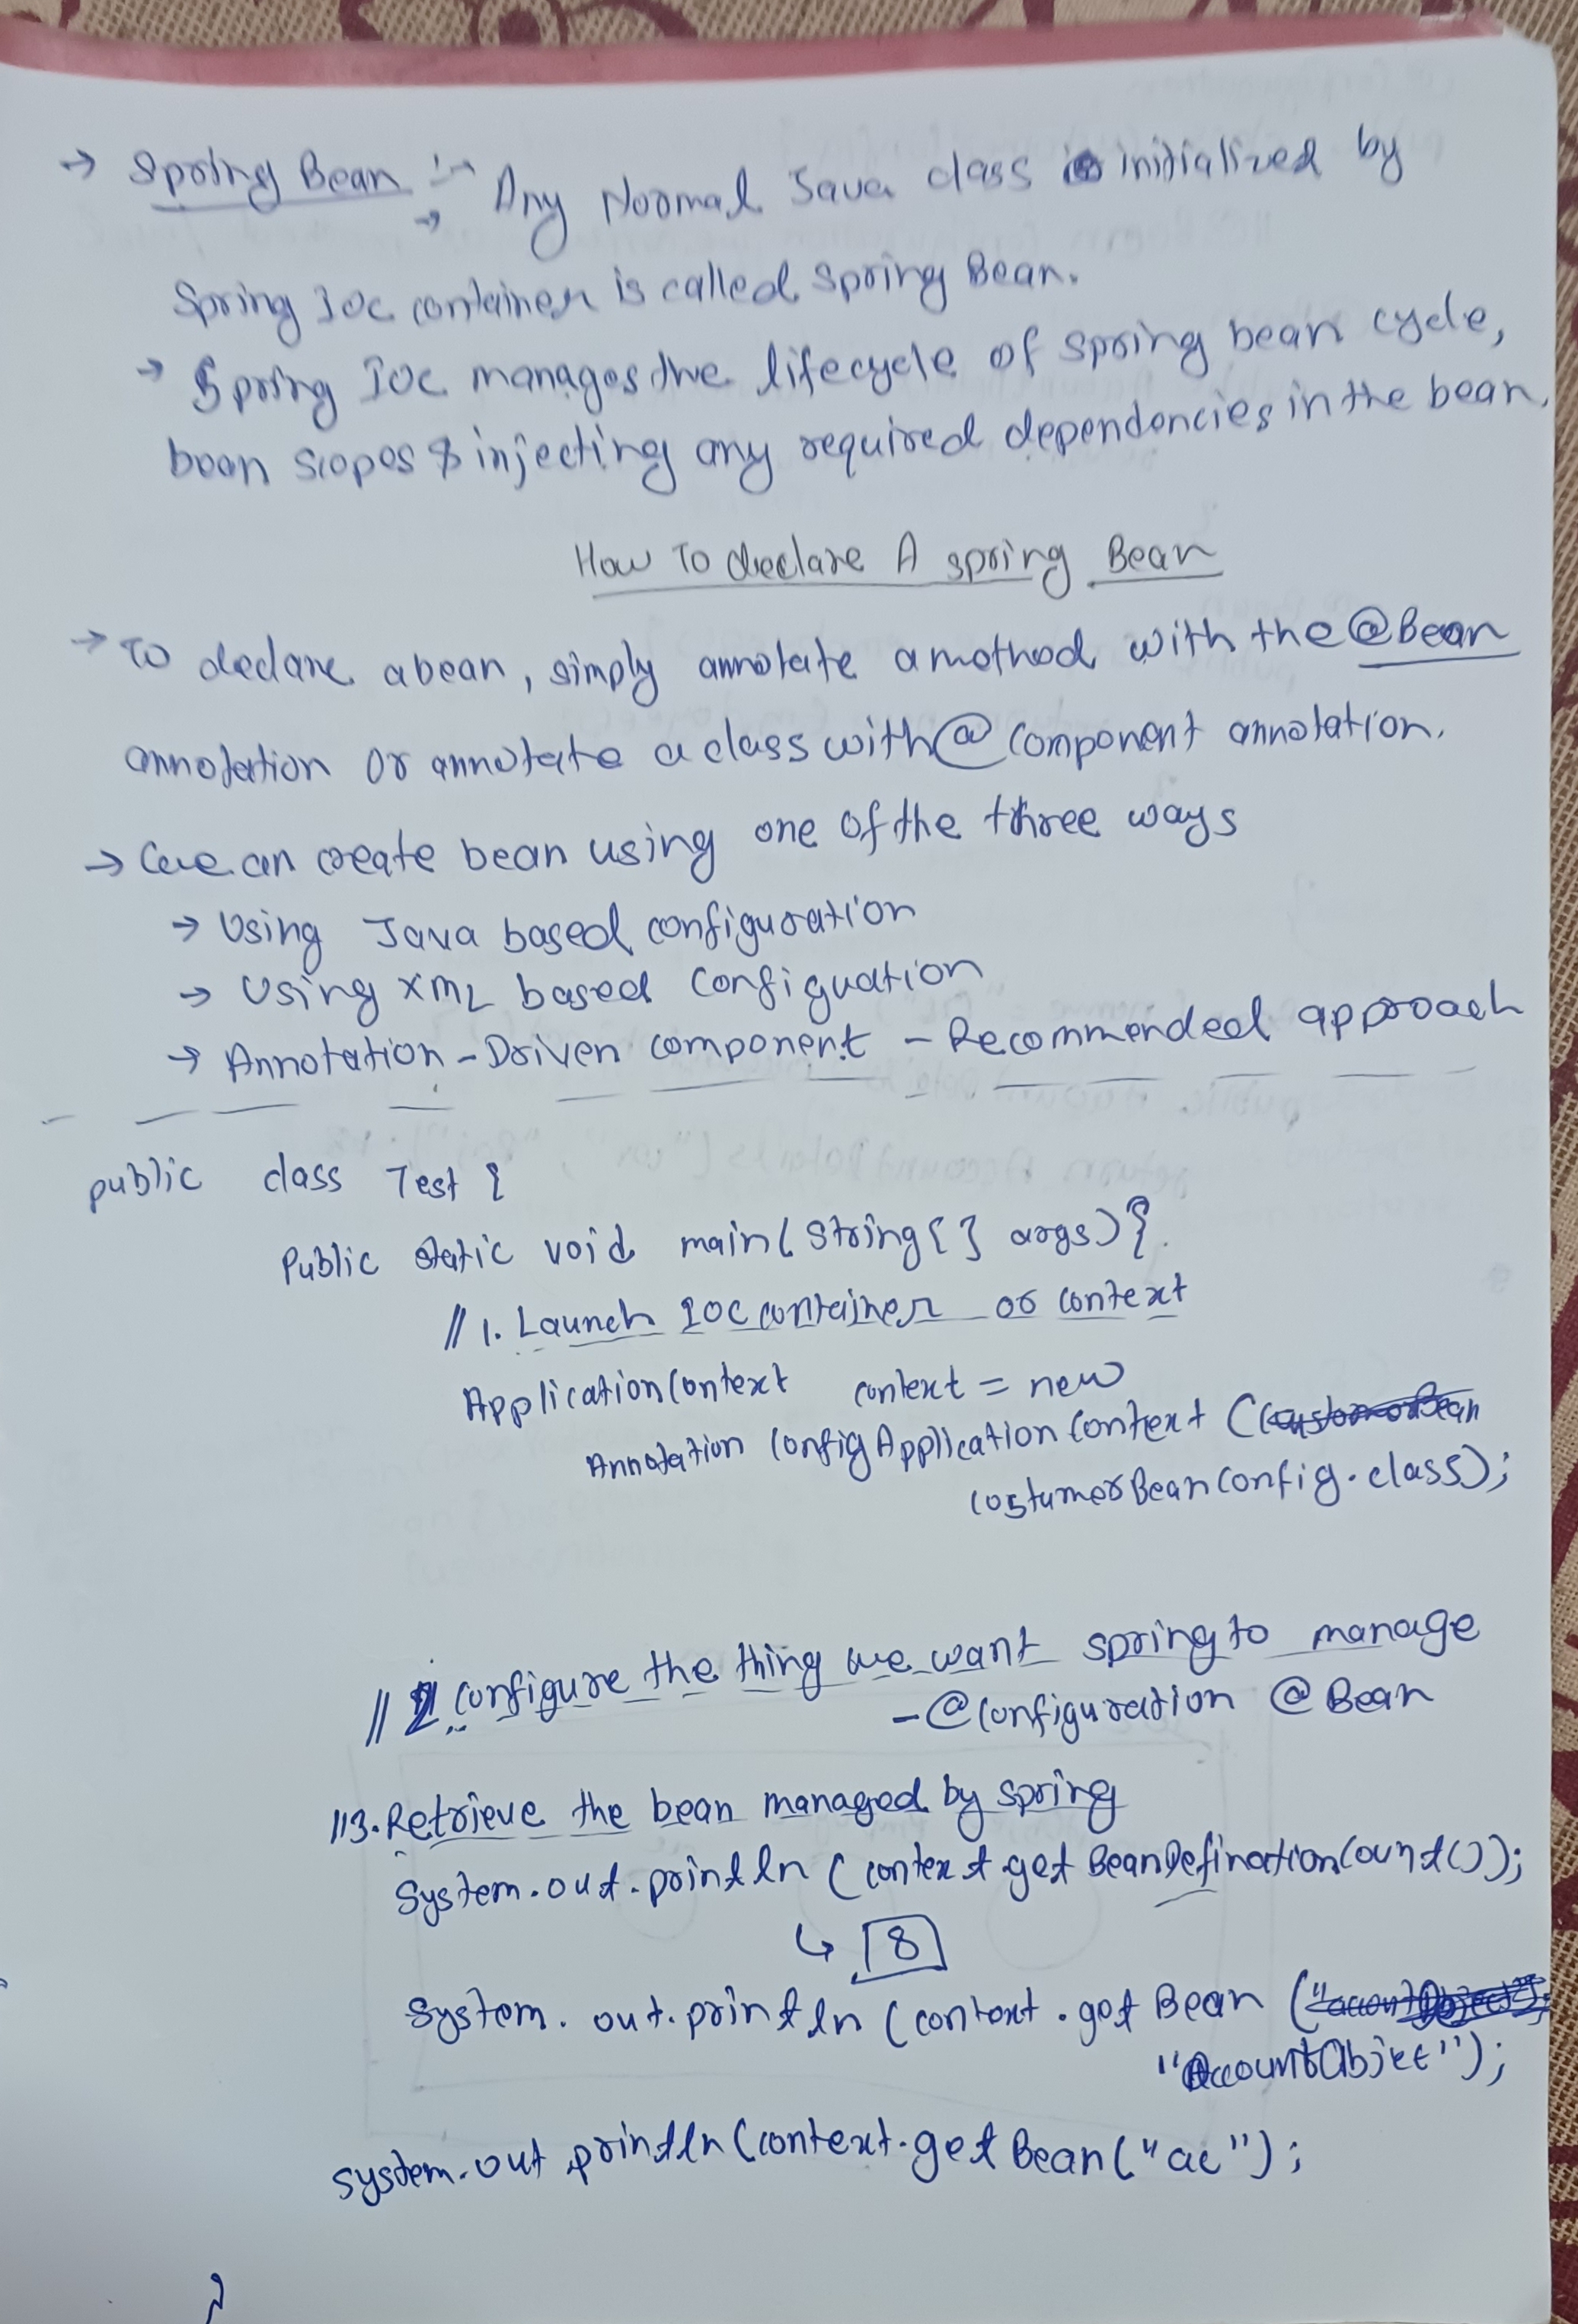 → Spring Bean :→ Any Normal Java class initialized by
Spring IOC container is called Spring Bean.
→ Spring IOC manages the lifecycle of spring bean cycle,
bean scopes & injecting any required dependencies in the bean.
How To declare A spring Bean
→ To declare a bean, simply annotate a method with the @Bean
annotation or annotate a class with @component annotation.
→ We can create bean using one of the three ways
→ Using Java based configuration
→ Using XML based Configuation
→ Annotation-Driven component - Recommended approach
public class Test {
Public static void main(String[] args){
// 1. Launch IOC container or context
ApplicationContext context = new
Annotation ConfigApplicationContext (
CostumerBeanConfig.class);
// 2. Configure the thing we want spring to manage
- @Configuration @Bean
//3. Retrieve the bean managed by spring
System.out.println (context.getBeanDefinationCount());
↳ 8
System.out.println (context.getBean (
"AccountObjet");
system.out.println(context.getBean("ac");
}